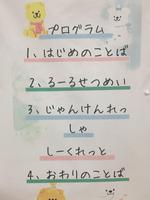 プログラム
1、はじめのことば
2、るーるせつめい
3、じゃんけんれっ
しゃ
しーくれっと
4、おわりのことば